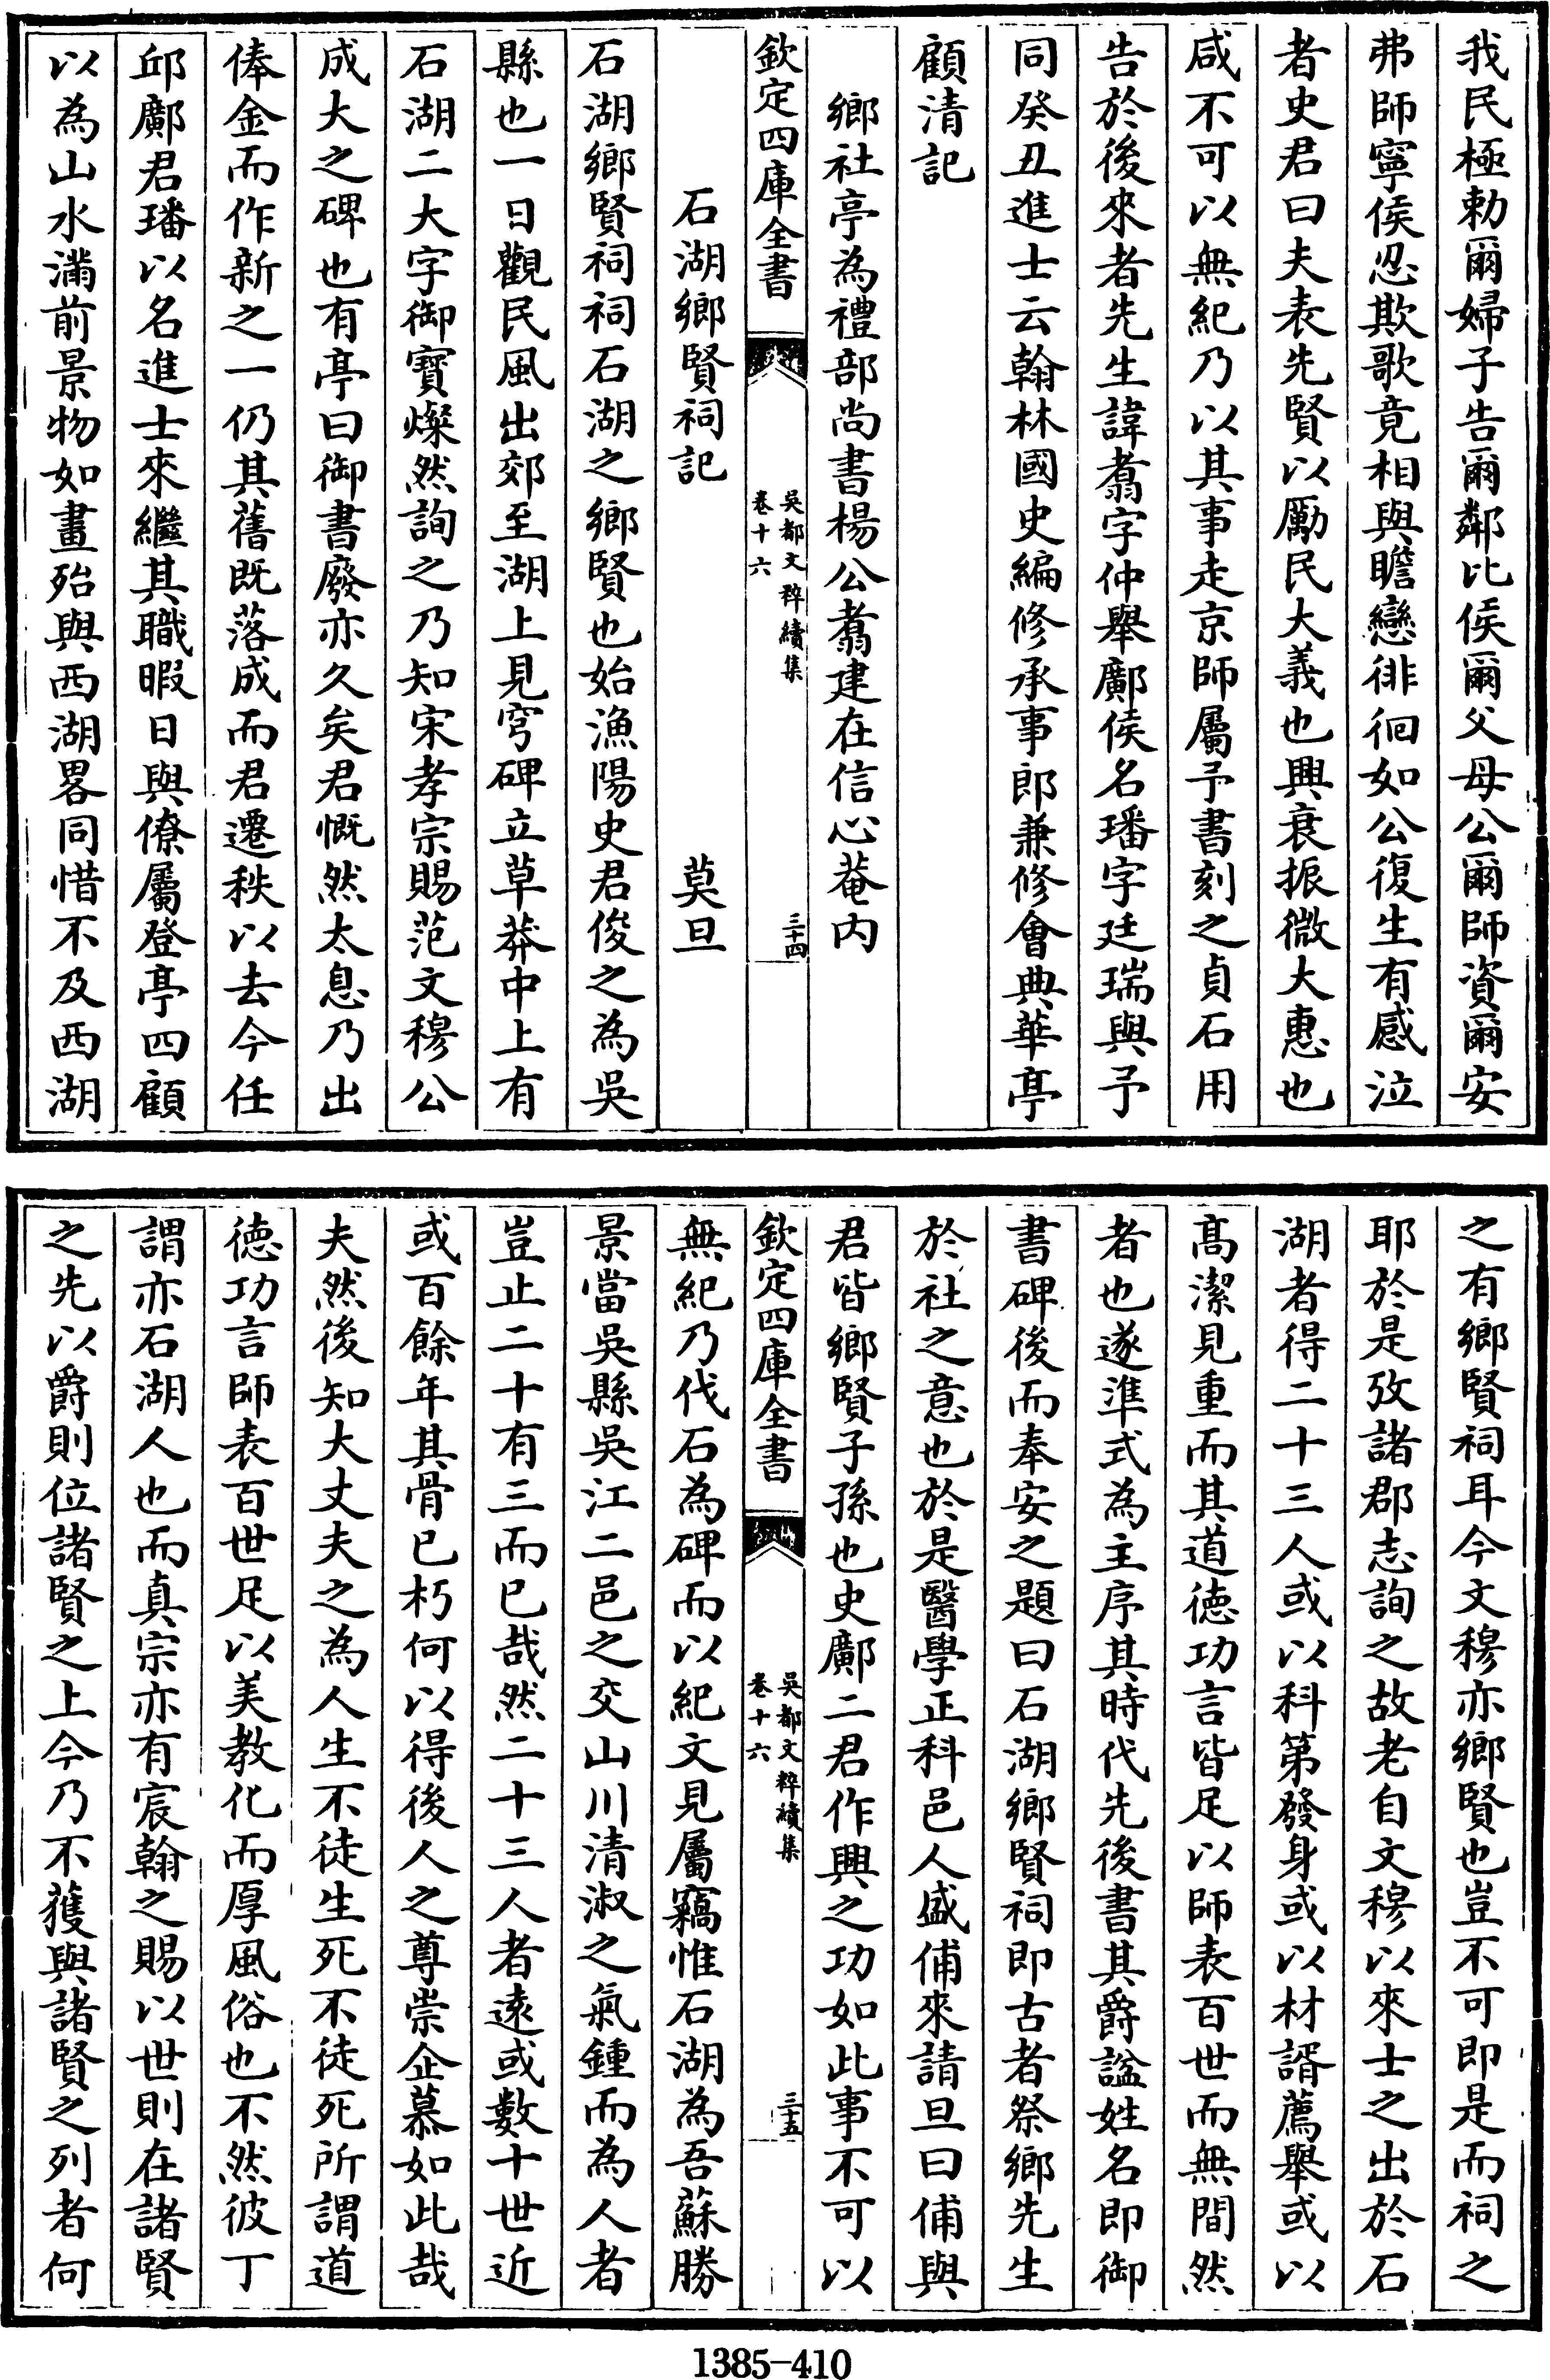 我民極勅爾婦子告爾鄰比侯爾父母公爾師資爾安
弗師寧侯忍欺歌竟相與瞻戀徘徊如公復生有感泣
者史君曰夫表先賢以勵民大義也興衰振微大惠也
咸不可以無紀乃以其事走京師屬予書刻之貞石用
告於後來者先生諱翥字仲舉鄺侯名璠字廷瑞與予
同癸丑進士云翰林國史編修承事郎兼修會典華亭
顧清記
鄉社亭為禮部尚書楊公翥建在信心菴内
欽定四庫全書
吳都文粹續集
卷十六
三十四
石湖鄉賢祠記
莫旦
石湖鄉賢祠祠石湖之鄉賢也始漁陽史君俊之為吳
縣也一日觀民風出郊至湖上見穹碑立草莽中上有
石湖二大字御寳燦然詢之乃知宋孝宗賜范文穆公
成大之碑也有亭曰御書廢亦久矣君慨然太息乃出
俸金而作新之一仍其舊既落成而君遷秩以去今任
邱鄺君璠以名進士來繼其職暇日與僚屬登亭四顧
以為山水滿前景物如畫殆與西湖畧同惜不及西湖
之有鄉賢祠耳今文穆亦鄉賢也豈不可即是而祠之
耶於是攷諸郡志詢之故老自文穆以來士之出於石
湖者得二十三人或以科第發身或以材諝薦舉或以
髙潔見重而其道徳功言皆足以師表百世而無間然
者也遂準式為主序其時代先後書其爵諡姓名即御
書碑後而奉安之題曰石湖鄉賢祠即古者祭鄉先生
於社之意也於是醫學正科邑人盛俌來請旦曰俌與
君皆鄉賢子孫也史鄺二君作興之功如此事不可以
欽定四庫全書
吳都文粹續集
卷十六
三十五
無紀乃伐石為碑而以紀文見屬竊惟石湖為吾蘇勝
景當吳縣吳江二邑之交山川清淑之氣鍾而為人者
豈止二十有三而已哉然二十三人者逺或數十世近
或百餘年其骨已朽何以得後人之尊崇企慕如此哉
夫然後知大丈夫之為人生不徒生死不徒死所謂道
徳功言師表百世足以美教化而厚風俗也不然彼丁
謂亦石湖人也而真宗亦有宸翰之賜以世則在諸賢
之先以爵則位諸賢之上今乃不獲與諸賢之列者何
1385-410